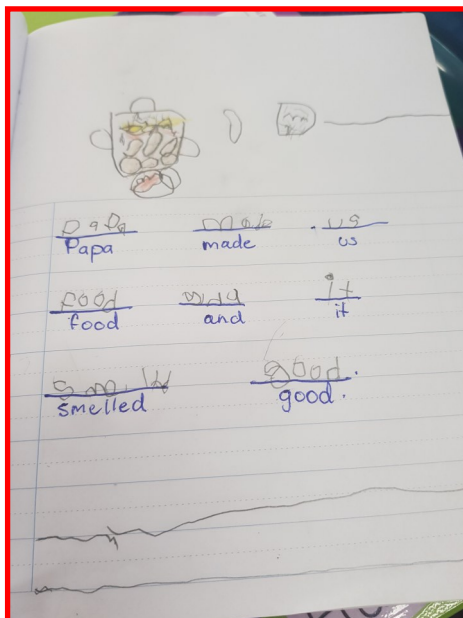 papa made us
Papa made us
food and it
food and it
smelled good.
good.